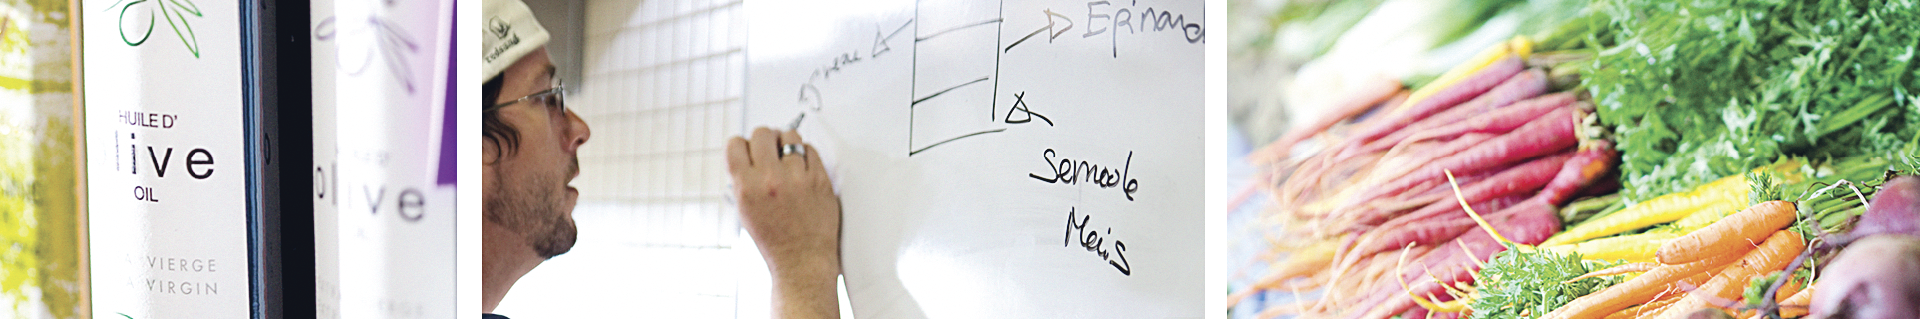 HUILE D'
olive
OIL
VIERGE
VIRGIN
olive
Epinard
Semoule
Maïs